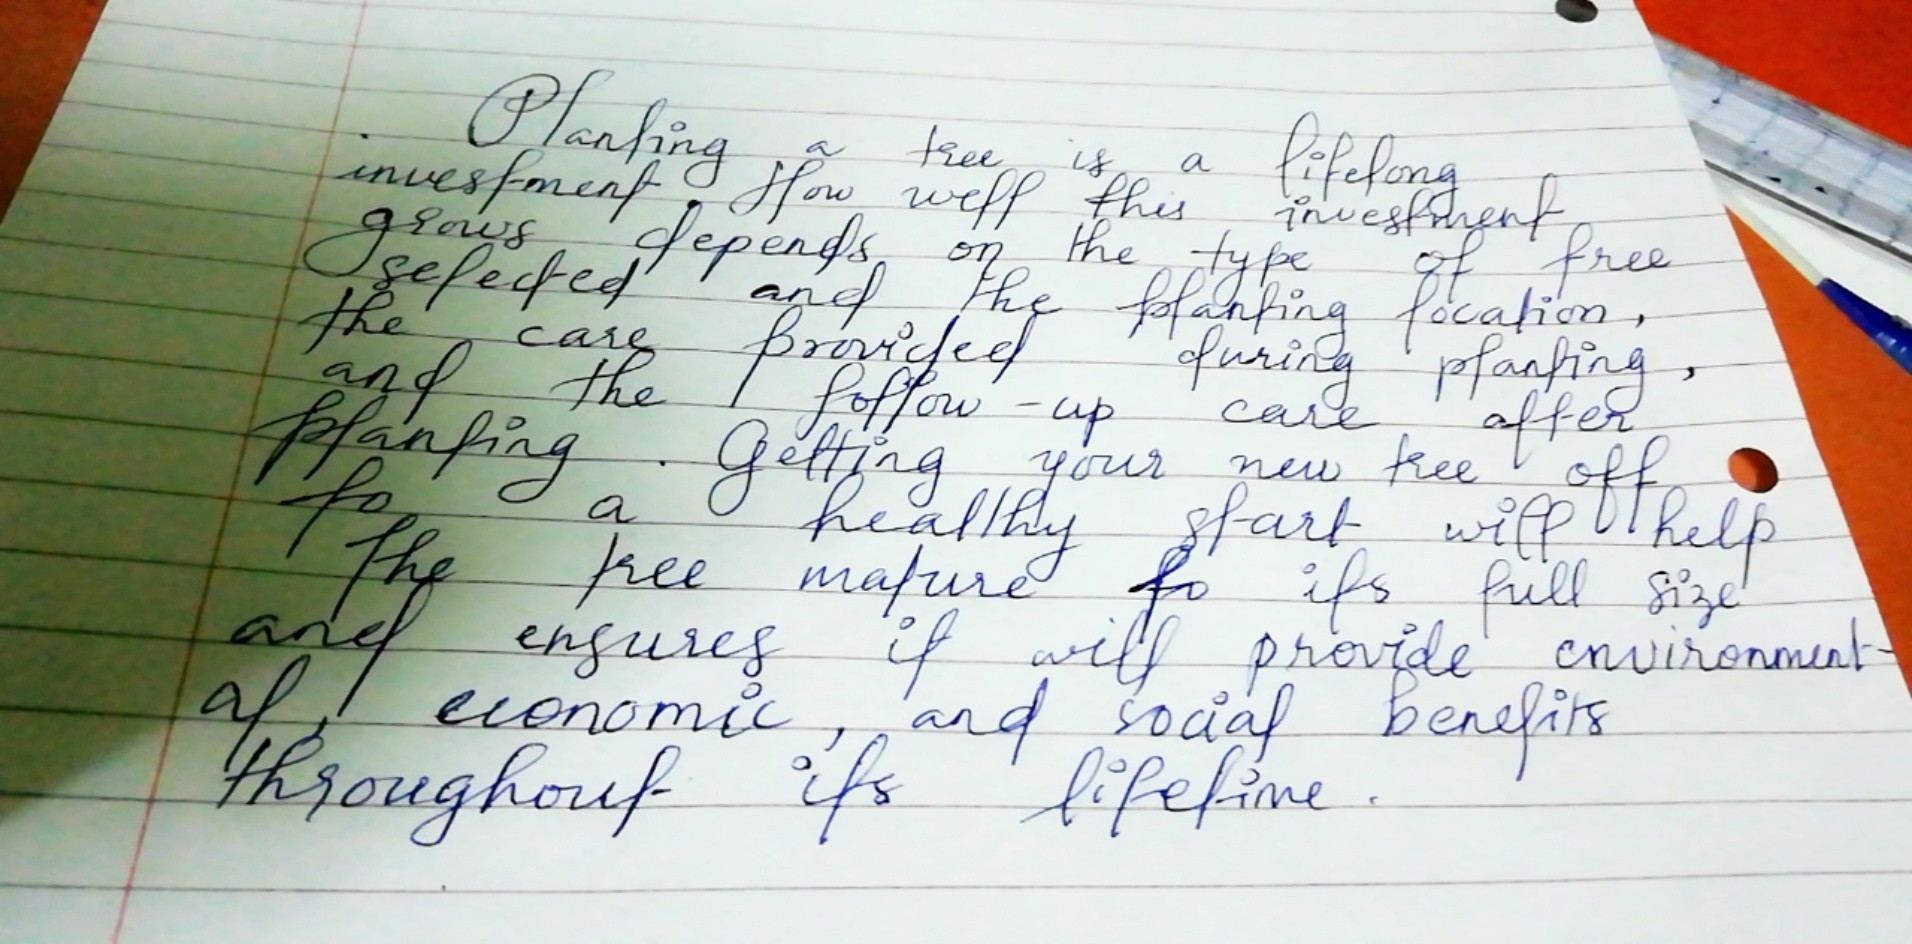 Planting a tree is a lifelong
investment. How well this investment
grows depends on the type of tree
selected and the planting location,
the care provided during planting,
and the follow-up care after
planting. Getting your new tree off
to a healthy start will help
the tree mature to its full size
and ensures it will provide environment-
al, economic, and social benefits
throughout its lifetime.